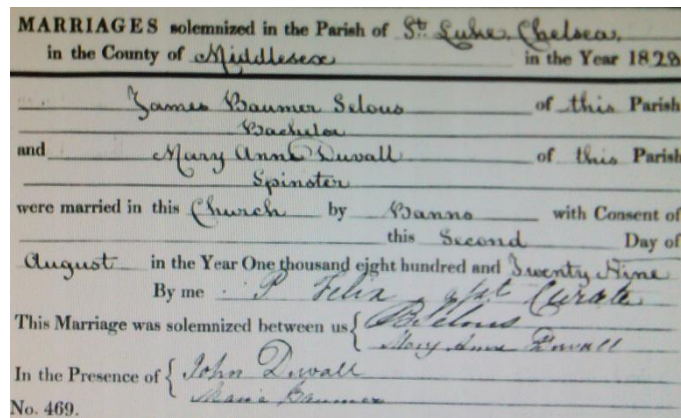 MARRIAGES solemnized in the Parish of St. Luke, Chelsea,
in the County of Middlesex in the Year 1829
James Baumer Selous of this Parish
Bachelor
and Mary Anne Duvall of this Parish
Spinster
were married in this Church by Banns with Consent of
this Second Day of
August in the Year One thousand eight hundred and Twenty Nine
By me P Felix Curate
This Marriage was solemnized between us { Selous
Mary Anne Duvall
In the Presence of { John Duvall
Maria Baumer
No. 469.